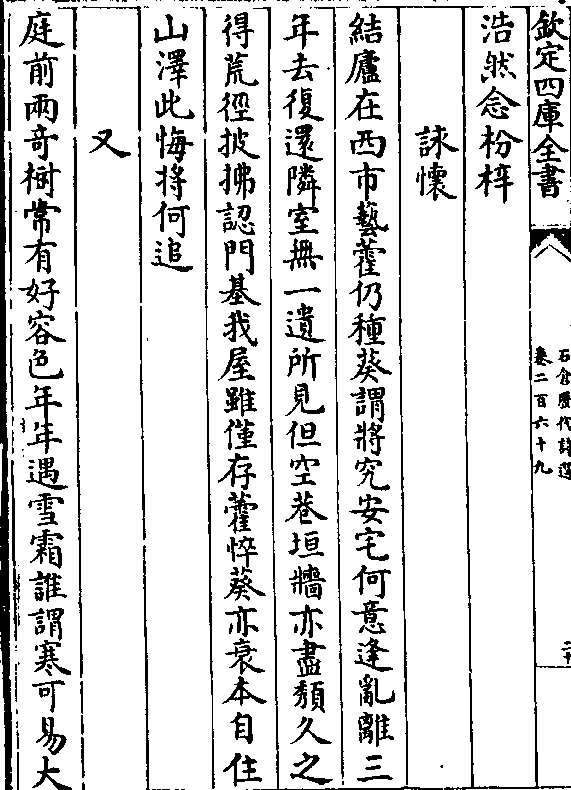 欽定四庫全書
石倉歷代詩選
卷二百六十九
二十
浩然念枌梓
詠懷
結廬在西市藝藿仍種葵謂將究安宅何意逢亂離三
年去復還隣室無一遺所見但空巷垣牆亦盡頽久之
得荒徑披拂認門基我屋雖僅存藿悴葵亦衰本自住
山澤此悔將何追
又
庭前兩奇樹常有好容色年年遇雪霜誰謂寒可易大